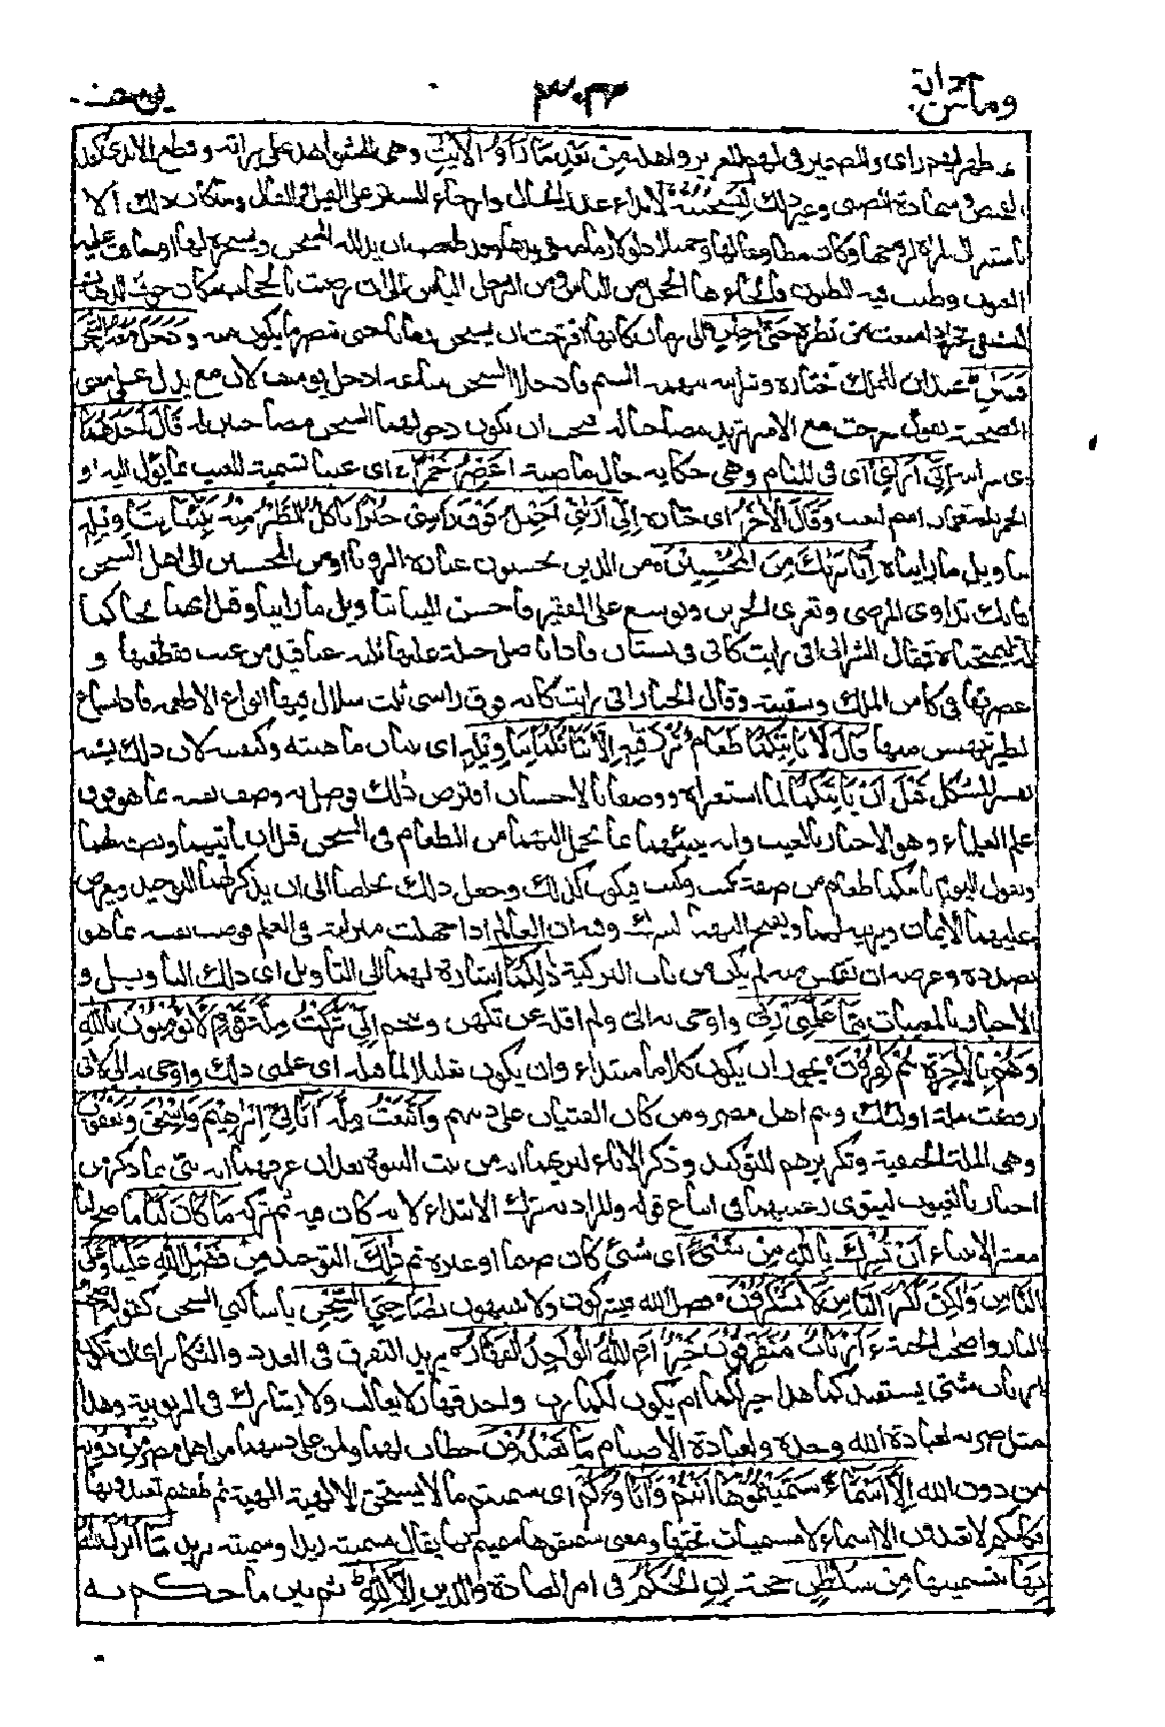 وما من دابة ٣٠٣ يوسف
ظهر لهم رأى والضمير فى لهم للعزيز وأهله مِنْ بَعْدِ مَا رَأَوُا الْاٰيٰتِ وهى الشواهد على براءته وقطع الايدى
القميص وشهادة الصبى وغير ذلك لَيَسْجُنُنَّهٗ لابداء عذر الحال وارخاء الستر على القيل والقال وما كان ذلك الا
باستنزال المرأة لزوجها وكان مطاوعا لها وحميلا ذلولا زمامه فى يدها وقد طمعت ان يذلله السجن ويسخره لها او خافت عليه
العيون وظنت فيه الظنون فألجأها الخجل من الناس والوجل من اليأس الى ان رضيت بالحجاب مكان خوف الذهاب
لتشتفى بخبره اذ منعت من نظره حَتّٰى حِيْنٍ الى زمان كأنها اقترحت ان يسجن زمانا حتى تبصر ما يكون منه وَدَخَلَ مَعَهُ السِّجْنَ
فَتَيٰنِ عبدان للملك خبازه وشرابيه بتهمة السم فأدخلا السجن ساعة ادخل يوسف لان مع يدل على معنى
الصحبة تقول خرجت مع الامير تريد مصاحبا له فيجب ان يكون دخولهما السجن مصاحبين له قَالَ اَحَدُهُمَا
اى شرابيه اِنِّىْ اَرٰىنِىْ اى فى المنام وهى حكاية حال ماضية اَعْصِرُ خَمْرًا اى عنبا تسمية للعنب بما يؤل اليه او
الخمر بلغة عمان اسم للعنب وَقَالَ الْاٰخَرُ اى خبازه اِنِّىْ اَرٰىنِىْ اَحْمِلُ فَوْقَ رَاْسِىْ خُبْزًا تَاْكُلُ الطَّيْرُ مِنْهُ نَبِّئْنَا بِتَاْوِيْلِهٖ
بتأويل ما رأيناه اِنَّا نَرٰىكَ مِنَ الْمُحْسِنِيْنَ من الذين يحسنون عبارة الرؤيا او من المحسنين الى اهل السجن
فانك تداوى المرضى وتعزى الحزين وتوسع على الفقير فأحسن الينا بتأويل ما رأينا وقيل انهما تحالما
له ليمتحناه فقال الشرابى انى رأيت كأنى فى بستان فاذا بأصل حبلة عليها ثلثة عناقيد من عنب فقطفتها و
عصرتها فى كأس الملك وسقيته وقال الخباز انى رأيت كأنه فوق رأسى ثلث سلال فيها انواع الاطعمة فاذا سباع
الطير تنهس منها قَالَ لَا يَاْتِيْكُمَا طَعَامٌ تُرْزَقٰنِهٖ اِلَّا نَبَّاْتُكُمَا بِتَاْوِيْلِهٖ اى ببيان ماهيته وكيفيته لان ذلك يشبه
تفسير المشكل قَبْلَ اَنْ يَّاْتِيَكُمَا لما استعبراه ووصفاه بالاحسان افترص ذلك فوصل به وصف نفسه بما هو فوق
علم العلماء وهو الاخبار بالغيب وانه ينبئهما بما يحمل اليهما من الطعام فى السجن قبل ان يأتيهما ويصفه لهما
ويقول اليوم يأتيكما طعام من صفته كيت وكيت فيكون كذلك وجعل ذلك تخلصا الى ان يذكر لهما التوحيد ويعرض
عليهما الايمان ويزينه لهما ويقبح اليهما الشرك وفيه ان العالم اذا جهلت منزلته فى العلم فوصف نفسه بما هو
بصدده وغرضه ان يقتبس منه لم يكن من باب التزكية ذٰلِكُمَا اشارة لهما الى التأويل اى ذلك التأويل و
الاخبار بالمغيبات مِمَّا عَلَّمَنِىْ رَبِّىْ واوحى به الى ولم اقله عن تكهن وتنجم اِنِّىْ تَرَكْتُ مِلَّةَ قَوْمٍ لَّا يُؤْمِنُوْنَ بِاللّٰهِ
وَهُمْ بِالْاٰخِرَةِ هُمْ كٰفِرُوْنَ يجوز ان يكون كلاما مبتدأ وان يكون تعليلا لما قبله اى علمنى ذلك واوحى به الى لانى
رفضت ملة اولئك وهم اهل مصر ومن كان الفتيان على دينهم وَاتَّبَعْتُ مِلَّةَ اٰبَآءِىْ اِبْرٰهِيْمَ وَاِسْحٰقَ وَيَعْقُوْبَ
وهى الملة الحنيفية وتكريرهم للتوكيد وذكر الآباء ليريهما انه من بيت النبوة بعد ان عرفهما انه نبى بما ذكر من
اخباره بالغيوب ليقوى رغبتهما فى اتباع قوله والمراد به ترك الابتداء لا انه كان فيه ثم تركه مَا كَانَ لَنَا ما صح لنا
معشر الانبياء اَنْ نُّشْرِكَ بِاللّٰهِ مِنْ شَىْءٍ اى شئ كان صنما او غيره ثم ذٰلِكَ التوحيد مِنْ فَضْلِ اللّٰهِ عَلَيْنَا وَعَلَى
النَّاسِ وَلٰكِنَّ اَكْثَرَ النَّاسِ لَا يَشْكُرُوْنَ فضل الله فيشركون ولا ينتهون يٰصَاحِبَىِ السِّجْنِ يا ساكنى السجن كقوله اصحٰب
النار واصحٰب الجنة ءَاَرْبَابٌ مُّتَفَرِّقُوْنَ خَيْرٌ اَمِ اللّٰهُ الْوَاحِدُ الْقَهَّارُ يريد التفرق فى العدد والتكاثر اى ان تكون
ارباب شتى يستعبدكما هذا وهذا خير لكما ام يكون لكما رب واحد قهار لا يغالب ولا يشارك فى الربوبية وهذا
مثل ضربه لعبادة الله وحده ولعبادة الاصنام مَا تَعْبُدُوْنَ خطاب لهما ولمن على دينهما من اهل مصر مِنْ دُوْنِهٖ
من دون الله اِلَّا اَسْمَآءً سَمَّيْتُمُوْهَا اَنْتُمْ وَاٰبَآؤُكُمْ اى سميتم ما لا يستحق الالهية الهة ثم طفقتم تعبدونها
فكأنكم لا تعبدون الا اسماء لا مسميات تحتها ومعنى سميتموها سميتم بها يقال سميته زيدا وسميته بزيد مَا اَنْزَلَ اللّٰهُ
بِهَا بتسميتها مِنْ سُلْطٰنٍ حجة اِنِ الْحُكْمُ فى امر العبادة والدين اِلَّا لِلّٰهِ ثم بين ما حكم به